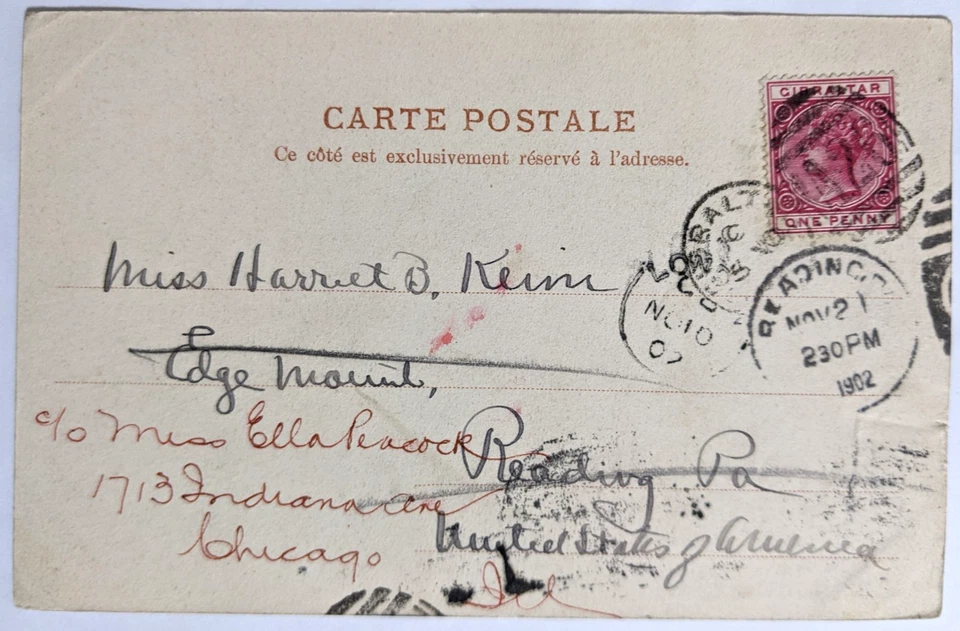 GIBRALTAR
ONE PENNY
CARTE POSTALE
Ce côté est exclusivement réservé à l'adresse.
READING
NOV 21
2 30 PM
1902
NO 10
02
Miss Harriet B. Keim
Edge Mount,
Reading Pa
United States of America
c/o Miss Ella Peacock
1713 Indiana Ave
Chicago
Ill